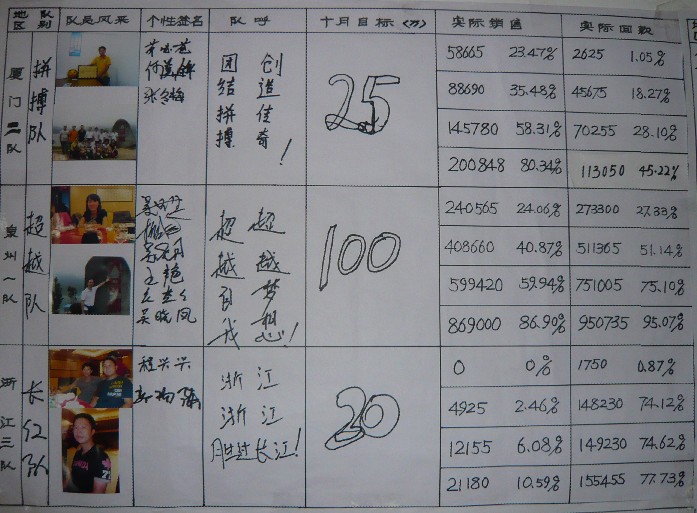 地区 队别 队员风采 个性签名 队呼 十月目标(万) 实际销售 实际回款
厦门二队
拼搏队
团结拼搏
创造佳奇!
25
58665 23.47% 2625 1.05%
88690 35.48% 45675 18.27%
145780 58.31% 70255 28.10%
200848 80.34% 113050 45.22%
泉州一队
超越队
吴晓凤
超越自我
超越梦想!
100
240565 24.06% 273300 27.33%
408660 40.87% 511365 51.14%
599420 59.94% 751005 75.10%
869000 86.90% 950735 95.07%
浙江三队
长红队
程兴兴
浙江
浙江
胜过长江!
20
0 0% 1750 0.87%
4925 2.46% 148230 74.12%
12155 6.08% 149230 74.62%
21180 10.59% 155455 77.73%